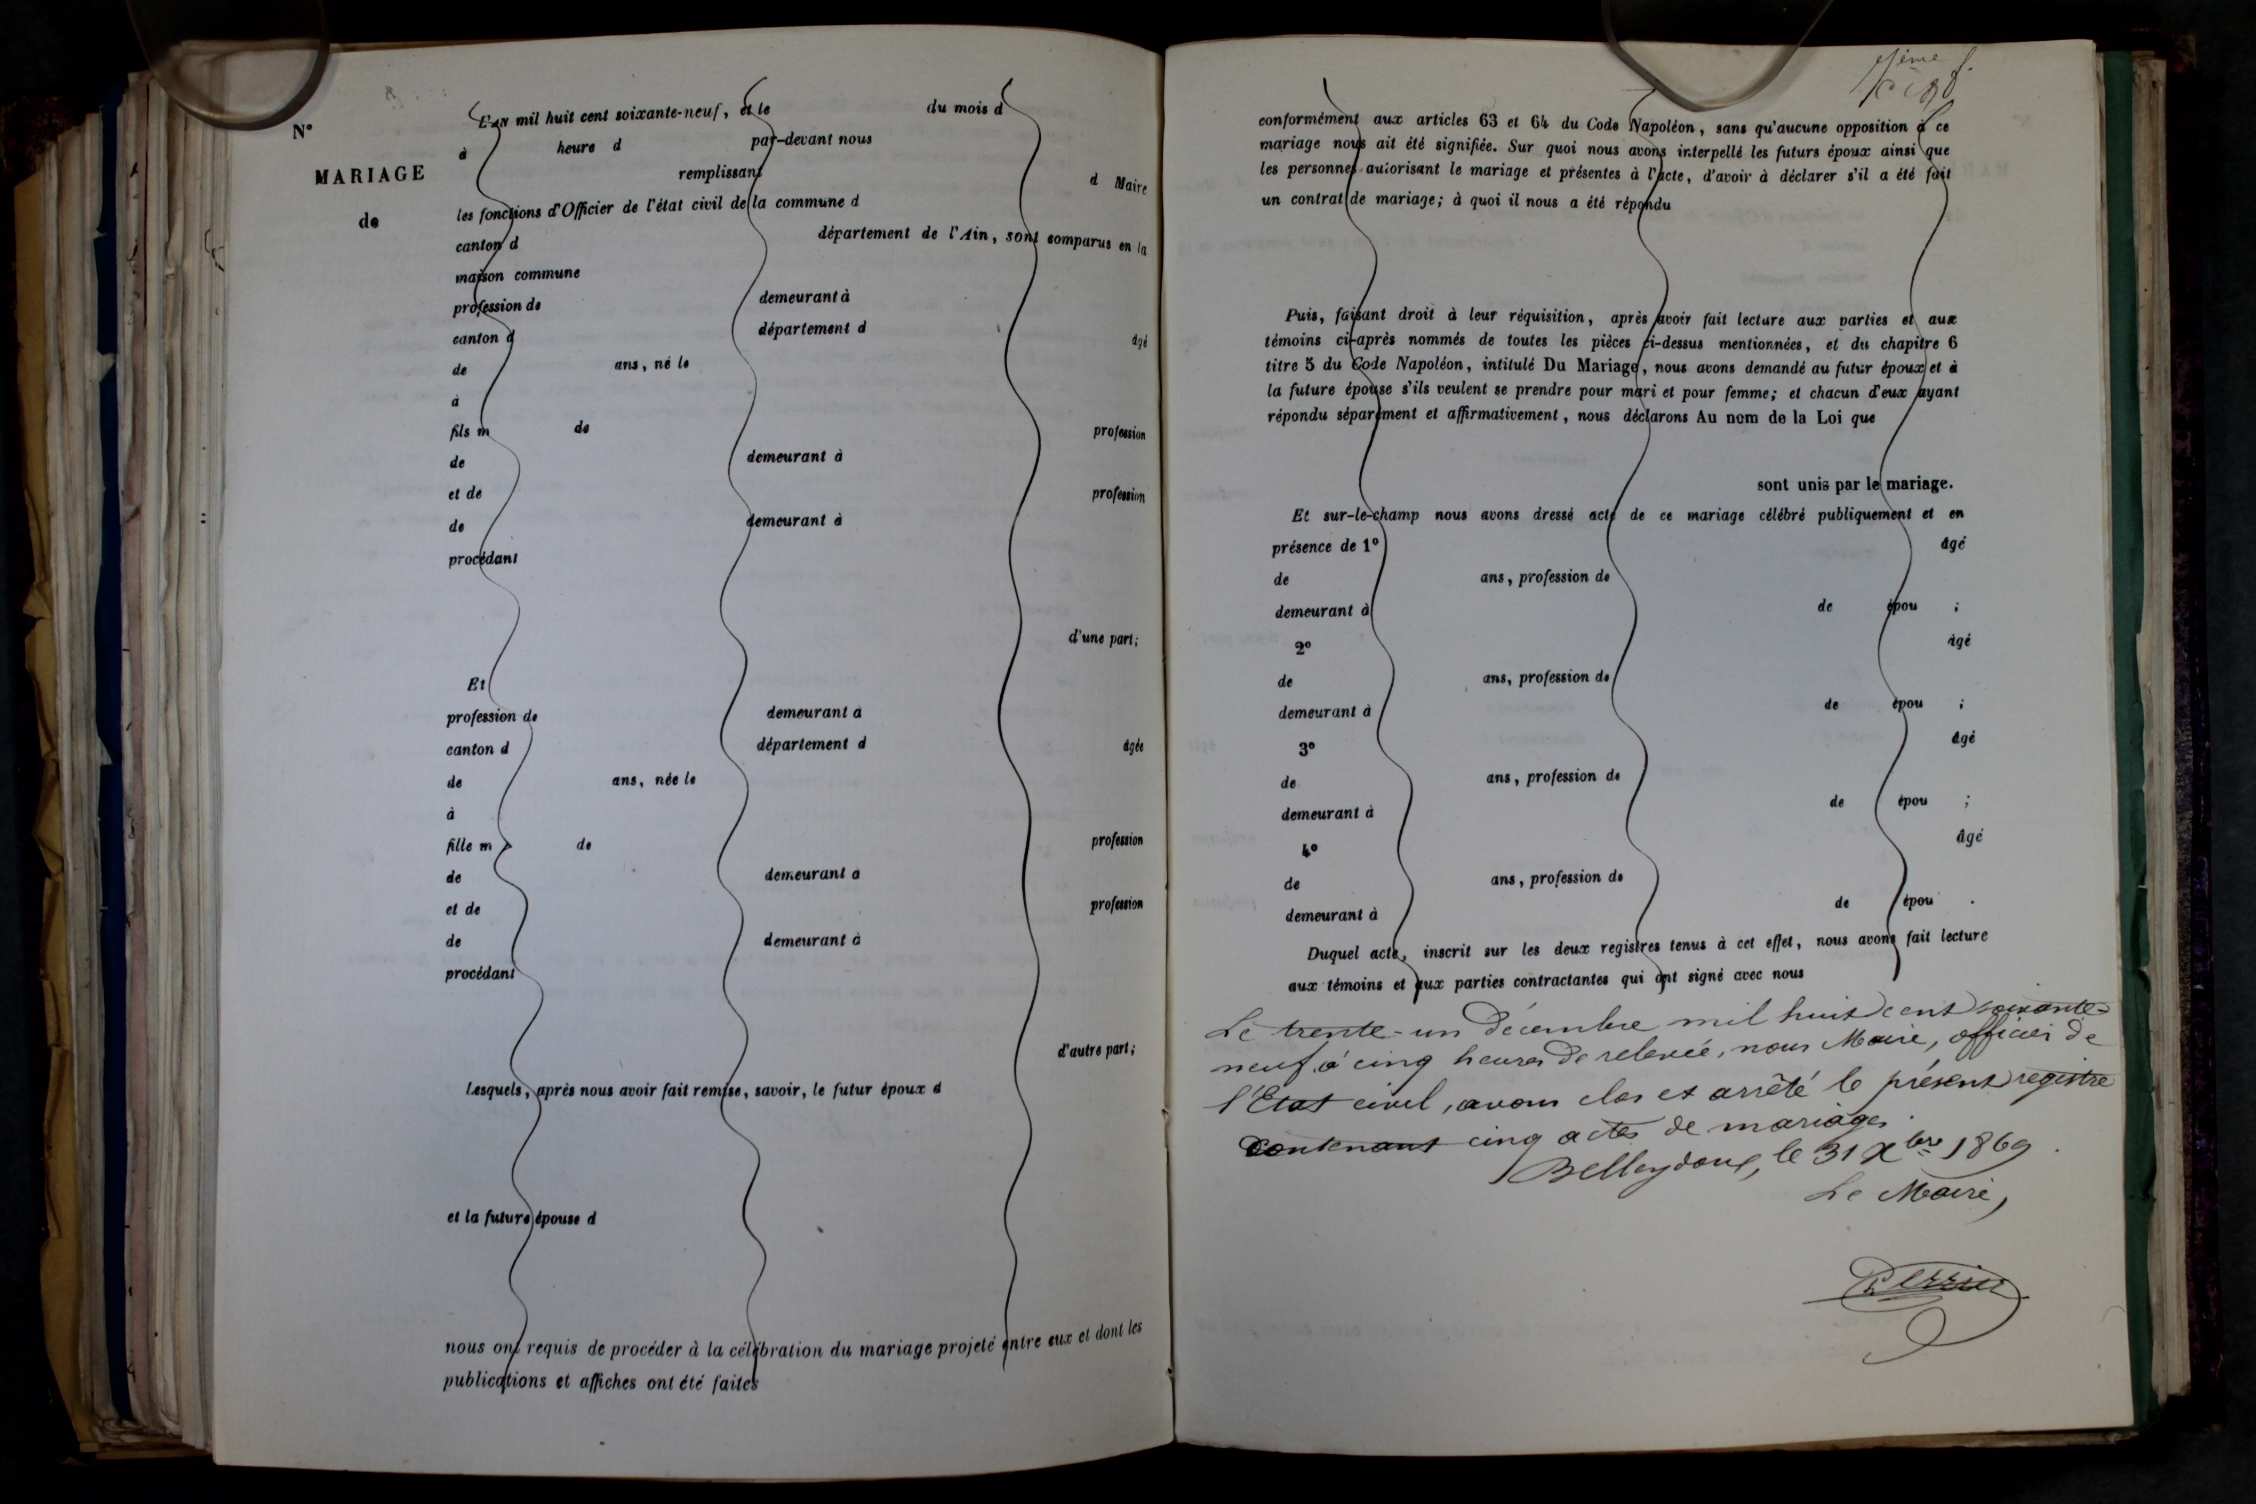 N°
MARIAGE
de
L'AN mil huit cent soixante-neuf, et le du mois d
à heure d par-devant nous
remplissant d Maire
les fonctions d'Officier de l'état civil de la commune d
canton d département de l'Ain, sont comparus en la
maison commune
profession de demeurant à
canton d département d âgé
de ans, né le
à
fils m de profession
de demeurant à
et de profession
de demeurant à
procédant
d'une part;
Et
profession de demeurant à
canton d département d âgée
de ans, née le
à
fille m de profession
de demeurant à
et de profession
de demeurant à
procédant
d'autre part;
Lesquels, après nous avoir fait remise, savoir, le futur époux d
et la future épouse d
nous ont requis de procéder à la célébration du mariage projeté entre eux et dont les
publications et affiches ont été faites
conformément aux articles 63 et 64 du Code Napoléon, sans qu'aucune opposition à ce
mariage nous ait été signifiée. Sur quoi nous avons interpellé les futurs époux ainsi que
les personnes autorisant le mariage et présentes à l'acte, d'avoir à déclarer s'il a été fait
un contrat de mariage; à quoi il nous a été répondu
Puis, faisant droit à leur réquisition, après avoir fait lecture aux parties et aux
témoins ci-après nommés de toutes les pièces ci-dessus mentionnées, et du chapitre 6
titre 5 du Code Napoléon, intitulé Du Mariage, nous avons demandé au futur époux et à
la future épouse s'ils veulent se prendre pour mari et pour femme; et chacun d'eux ayant
répondu séparément et affirmativement, nous déclarons Au nom de la Loi que
sont unis par le mariage.
Et sur-le-champ nous avons dressé acte de ce mariage célébré publiquement et en
présence de 1° âgé
de ans, profession de
demeurant à de épou ;
2° âgé
de ans, profession de
demeurant à de épou ;
3° âgé
de ans, profession de
demeurant à de épou ;
4° âgé
de ans, profession de
demeurant à de épou .
Duquel acte, inscrit sur les deux registres tenus à cet effet, nous avons fait lecture
aux témoins et aux parties contractantes qui ont signé avec nous
Le trente-un décembre mil huit cent soixante-
neuf à cinq heures de relevée, nous Maire, officier de
l'Etat civil, avons clos et arrêté le présent registre
contenant cinq actes de mariages.
Belleydoux, le 31 Xbre 1869
Le Maire,
Perrier